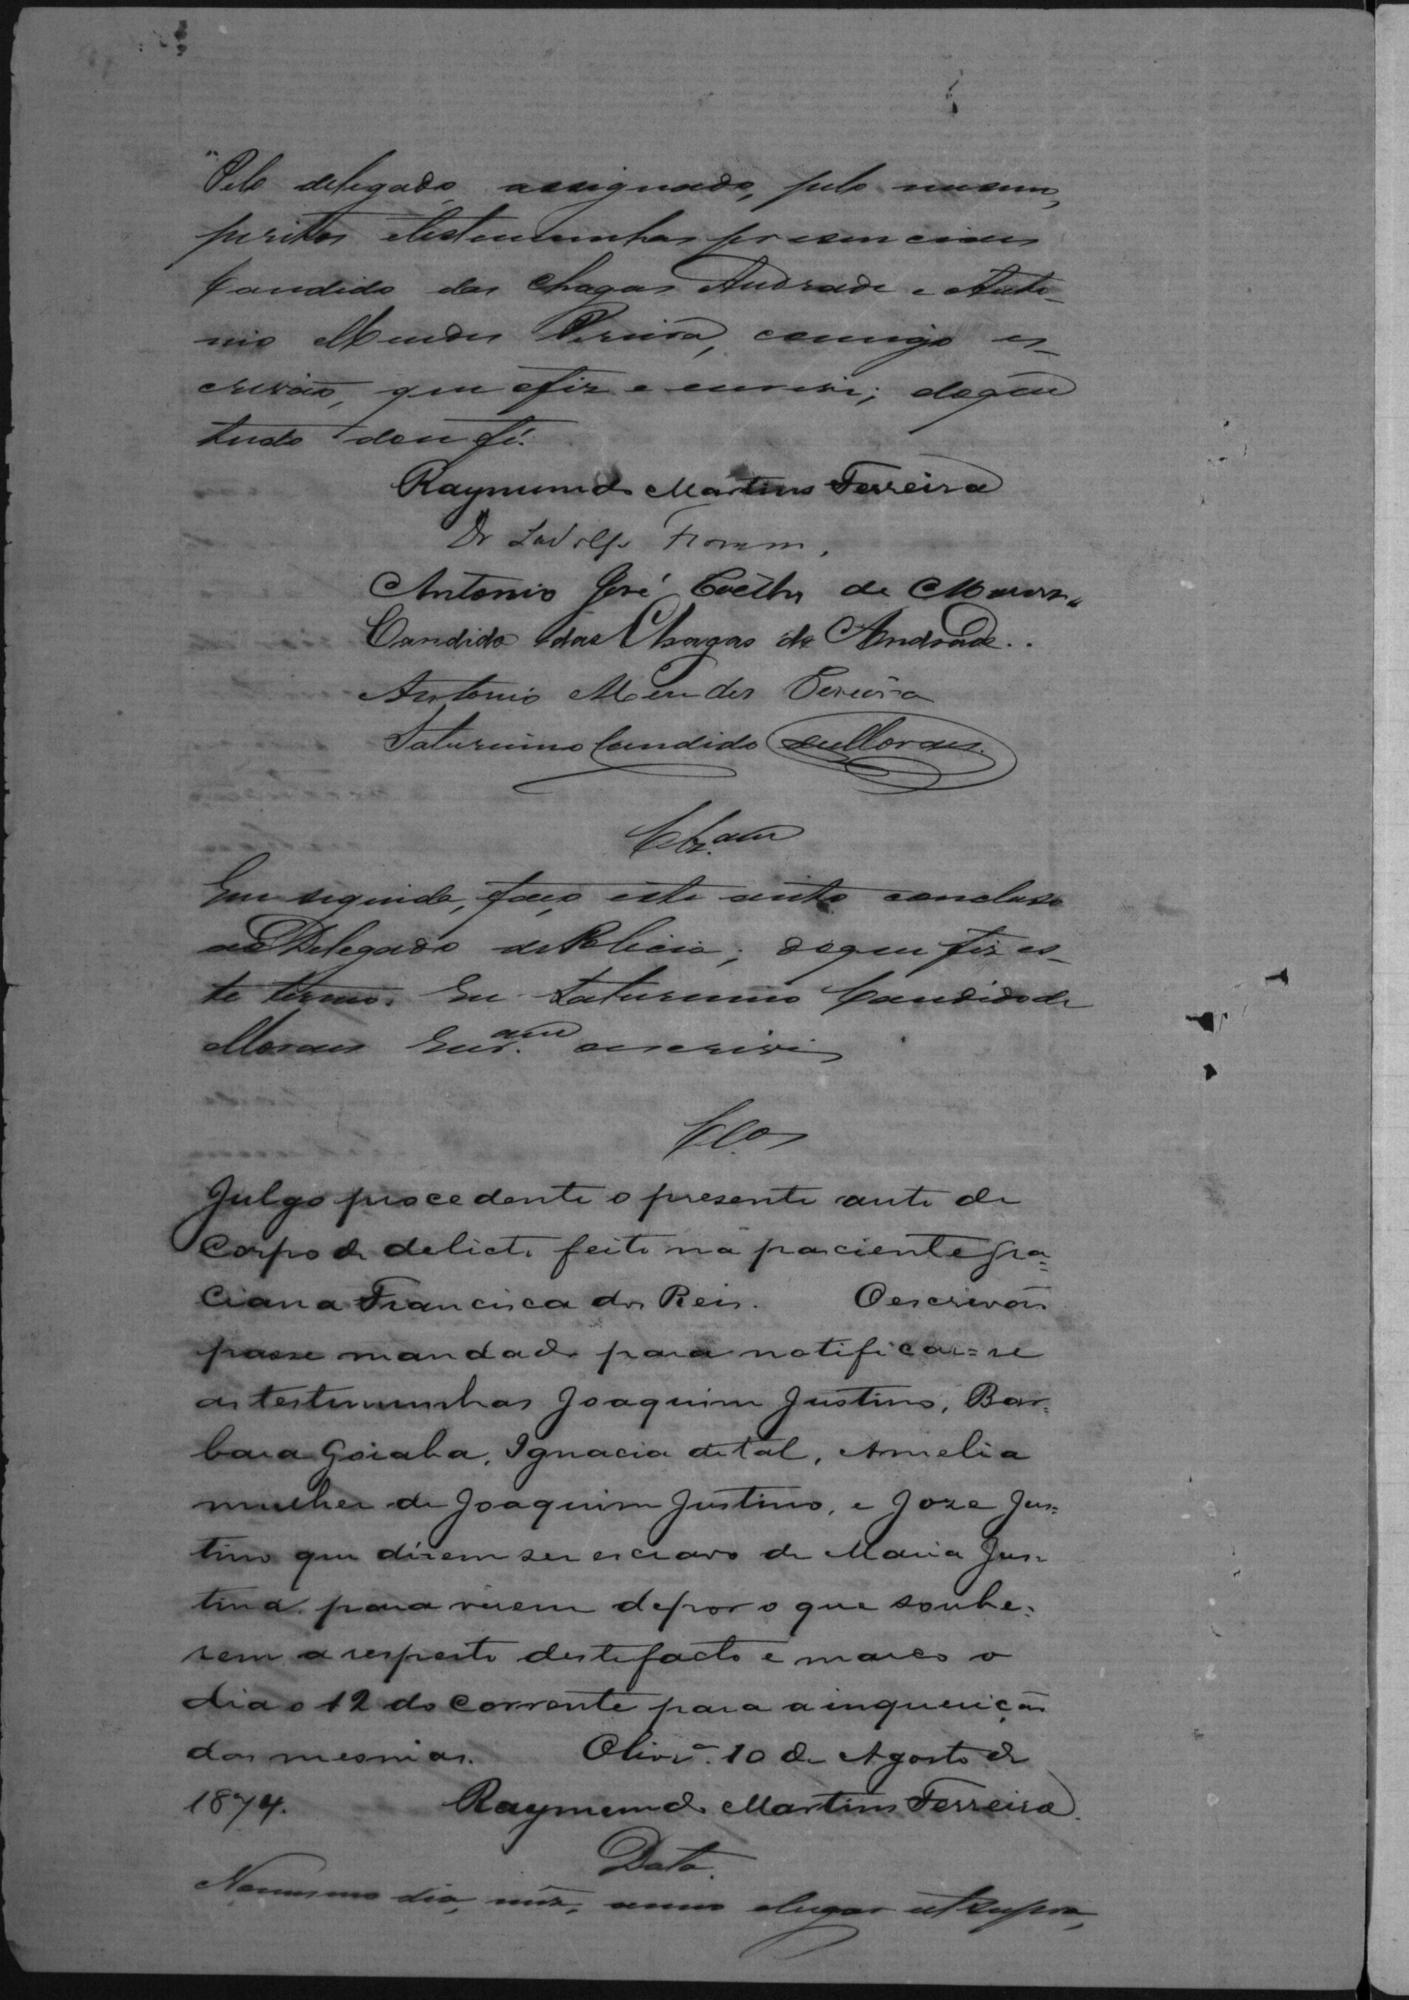 Pelo delegado, assignado, pelo mesmo,
peritos e testemunhas presenciaes
Candido das Chagas Andrade e Anto-
nio Mendes Pereira, comigo es-
crivão, que o fiz e escrevi; do que
tudo dou fé.
Raymundo Martins Ferreira
Dr Ludolfo Fromm.
Antonio José Coêlho de Moura
Candido das Chagas de Andrade..
Antonio Mendes Pereira
Saturnino Candido de Moraes.
Em seguida, faço este auto concluso
ao Delegado de Policia; do que fiz es-
te termo. Eu Saturnino Candido de
Moraes Escr.am o escrevi
Cl.os
Julgo procedente o presente auto de
Corpo de delicto feito na paciente Gra=
ciana Francisca dos Reis. O escrivão
passe mandado para notificar=se
as testemunhas Joaquim Justino, Bar=
bara Goiaba, Ignacia de tal, Amelia
mulher de Joaquim Justino, e Joze Jus=
tino que dizem ser escravo de Maria Jus=
tina para virem depor o que soube=
rem a respeito deste facto e marco o
dia 12 do corrente para a inquirição
das mesmas. Olivr.a 10 de Agosto de
1874. Raymundo Martins Ferreira.
Data.
No mesmo dia, mês, anno e lugar ut supra,